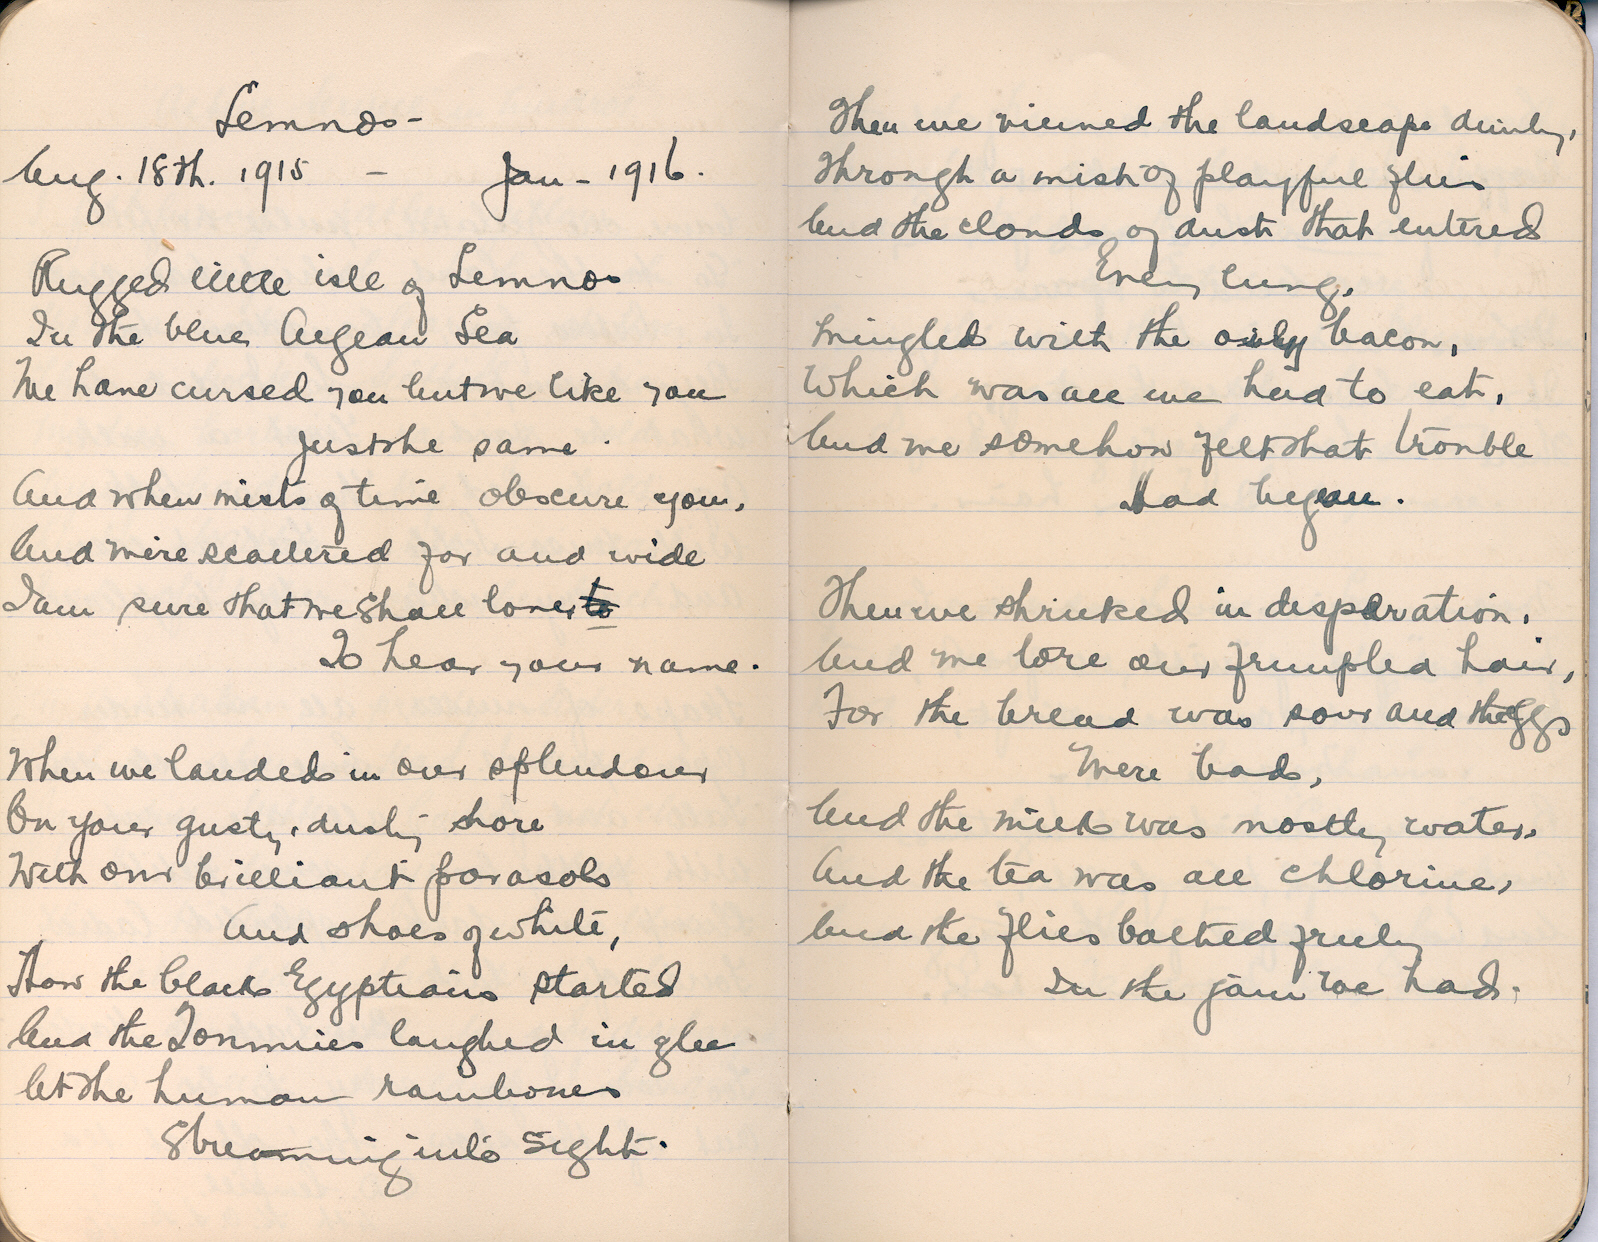 Lemnos -
Aug. 18th. 1915 - Jan - 1916.
Rugged little isle of Lemnos
In the blue Aegean Sea
We have cursed you but we like you
just the same.
And when mists of time obscure you,
And we're scattered far and wide
I am sure that we shall love to
To hear your name.
When we landed in our splendour
On your gusty, dusty shore
With our brilliant parasols
And shoes of white,
How the black Egyptians started
And the Tommies laughed in glee
At the human rainbows
Streaming into sight.
Then we viewed the landscape dimly,
Through a mist of playful flies
And the clouds of dust that entered
Every lung,
Mingled with the oily bacon,
Which was all we had to eat,
And we somehow felt that trouble
Had began.
Then we shrieked in desperation,
And we tore our frumpled hair,
For the bread was sour and the eggs
Were bad,
And the milk was mostly water,
And the tea was all chlorine,
And the flies bathed freely
In the jam we had.